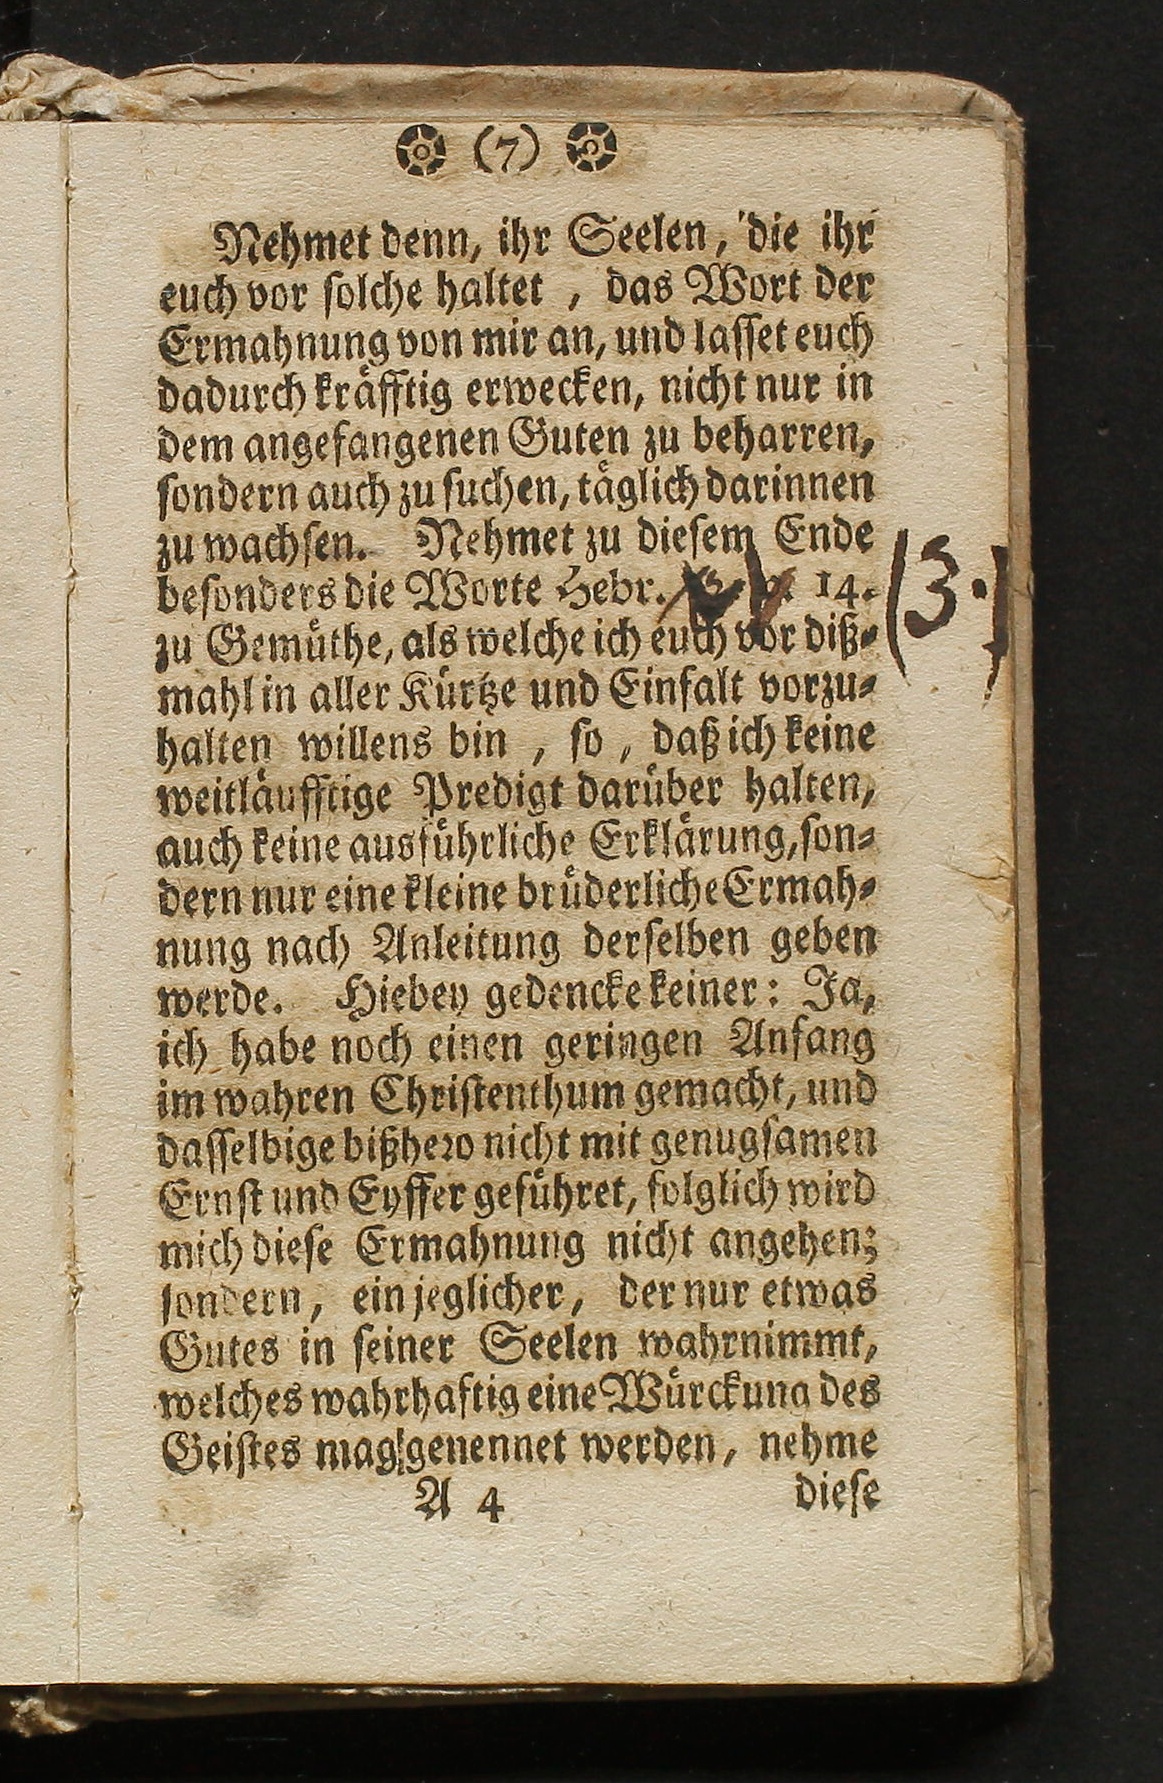 (7)
Nehmet denn, ihr Seelen, die ihr
euch vor solche haltet, das Wort der
Ermahnung von mir an, und lasset euch
dadurch kräfftig erwecken, nicht nur in
dem angefangenen Guten zu beharren,
sondern auch zu suchen, täglich darinnen
zu wachsen. Nehmet zu diesem Ende
besonders die Worte Hebr. 14. (3.)
zu Gemüthe, als welche ich euch vor diß-
mahl in aller Kürtze und Einfalt vorzu-
halten willens bin, so, daß ich keine
weitläufftige Predigt darüber halten,
auch keine ausführliche Erklärung, son-
dern nur eine kleine brüderliche Ermah-
nung nach Anleitung derselben geben
werde. Hiebey gedencke keiner: Ja,
ich habe noch einen geringen Anfang
im wahren Christenthum gemacht, und
dasselbige bißhero nicht mit genugsamen
Ernst und Eyffer geführet, folglich wird
mich diese Ermahnung nicht angehen;
sondern, ein jeglicher, der nur etwas
Gutes in seiner Seelen wahrnimmt,
welches wahrhaftig eine Würckung des
Geistes mag genennet werden, nehme
A 4 diese